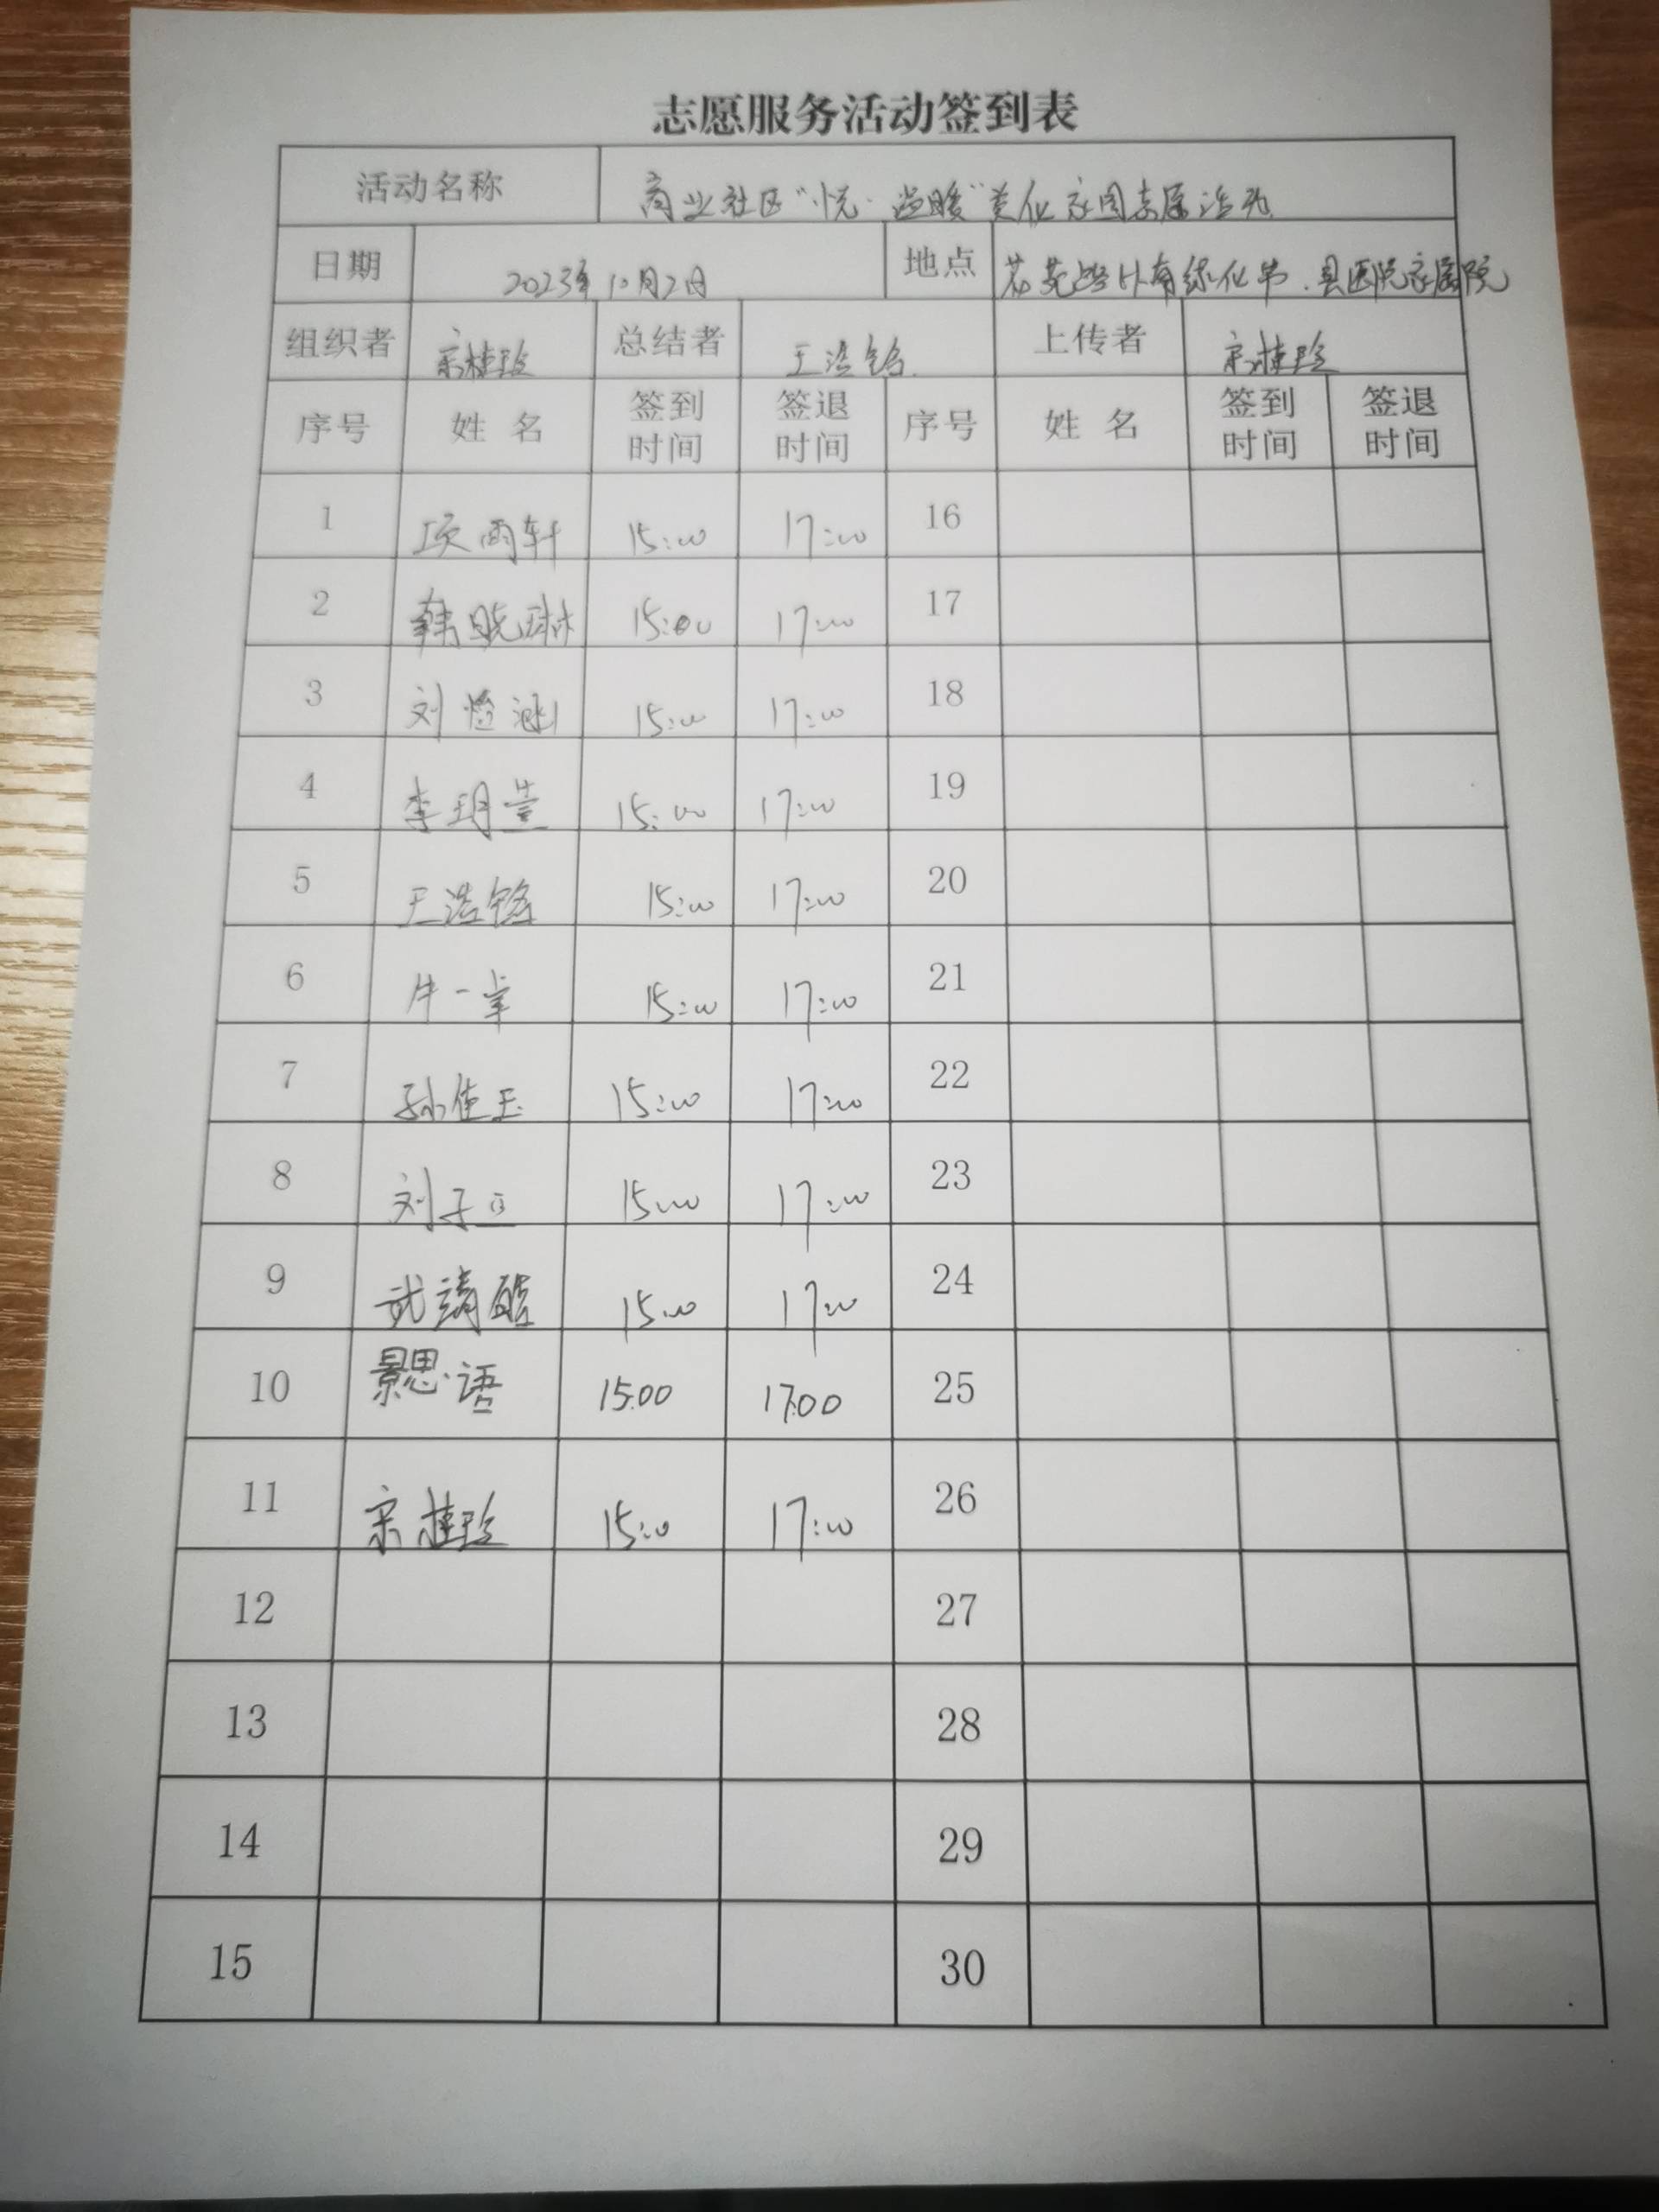 志愿服务活动签到表
活动名称 商业社区“悦·溢暖”美化家园志愿活动
日期 2023年10月2日 地点 县医院家属院
组织者 宋桂玲 总结者 王浩铭 上传者 宋桂玲
序号 姓名 签到时间 签退时间 序号 姓名 签到时间 签退时间
1 项雨轩 15:00 17:00 16
2 韩晓琳 15:00 17:00 17
3 刘 15:00 17:00 18
4 李玥萱 15:00 17:00 19
5 王浩铭 15:00 17:00 20
6 牛一 15:00 17:00 21
7 孙佳玉 15:00 17:00 22
8 刘子 15:00 17:00 23
9 武靖皓 15:00 17:00 24
10 景思语 15:00 17:00 25
11 宋桂玲 15:00 17:00 26
12 27
13 28
14 29
15 30